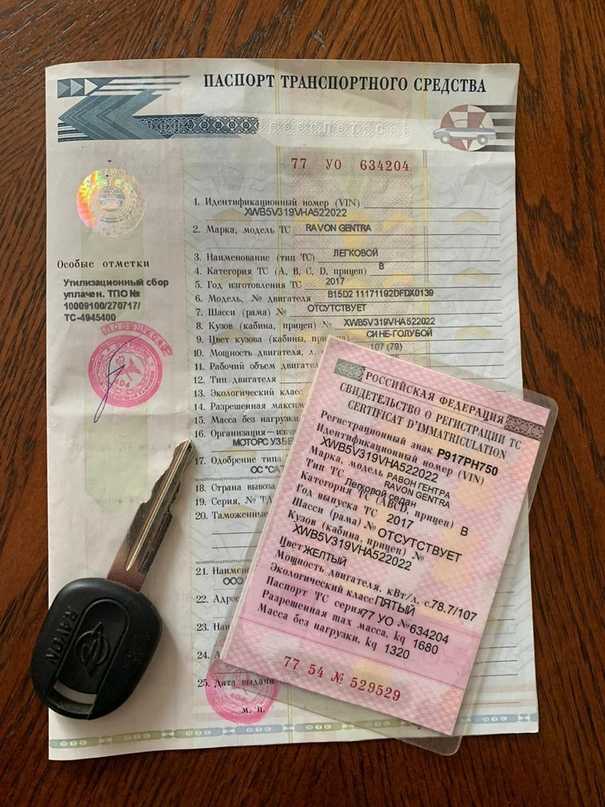 ПАСПОРТ ТРАНСПОРТНОГО СРЕДСТВА
77 УО 634204
1. Идентификационный номер (VIN)
XWB5V319VHA522022
2. Марка, модель ТС RAVON GENTRA
3. Наименование (тип ТС) ЛЕГКОВОЙ
4. Категория ТС (А, В, С, D, прицеп) В
5. Год изготовления ТС 2017
6. Модель, № двигателя B15D2 11171192DFDX0139
7. Шасси (рама) № ОТСУТСТВУЕТ
8. Кузов (кабина, прицеп) № XWB5V319VHA522022
9. Цвет кузова (кабины, СИНЕ-ГОЛУБОЙ
10. Мощность двигателя, 107 (79)
11. Рабочий объем
12. Тип двигателя
13. Экологический класс
14. Разрешенная
15. Масса без нагрузки
16. Организация
МОТОРС
17. Одобрение типа
ОС
18. Страна вывоза
19. Серия, №
20.
21.
ООО
22.
23.
24.
25. Дата выдачи
м. п.
Особые отметки
Утилизационный сбор
уплачен. ТПО №
10009100/270717/
ТС-4945400
РОССИЙСКАЯ ФЕДЕРАЦИЯ
СВИДЕТЕЛЬСТВО О РЕГИСТРАЦИИ ТС
CERTIFICAT D'IMMATRICULATION
Регистрационный знак Р917РН750
Идентификационный номер (VIN)
XWB5V319VHA522022
Марка, модель РАВОН ГЕНТРА
RAVON GENTRA
Тип ТС Легковой седан
Категория ТС (ABCD, прицеп) В
Год выпуска ТС 2017
Шасси (рама) № ОТСУТСТВУЕТ
Кузов (кабина, прицеп) №
XWB5V319VHA522022
Цвет ЖЕЛТЫЙ
Мощность двигателя, кВт/л. с. 78.7/107
Экологический класс ПЯТЫЙ
Паспорт ТС серия 77 УО № 634204
Разрешенная max масса, kg 1680
Масса без нагрузки, kg 1320
77 54 № 529529
RAVON